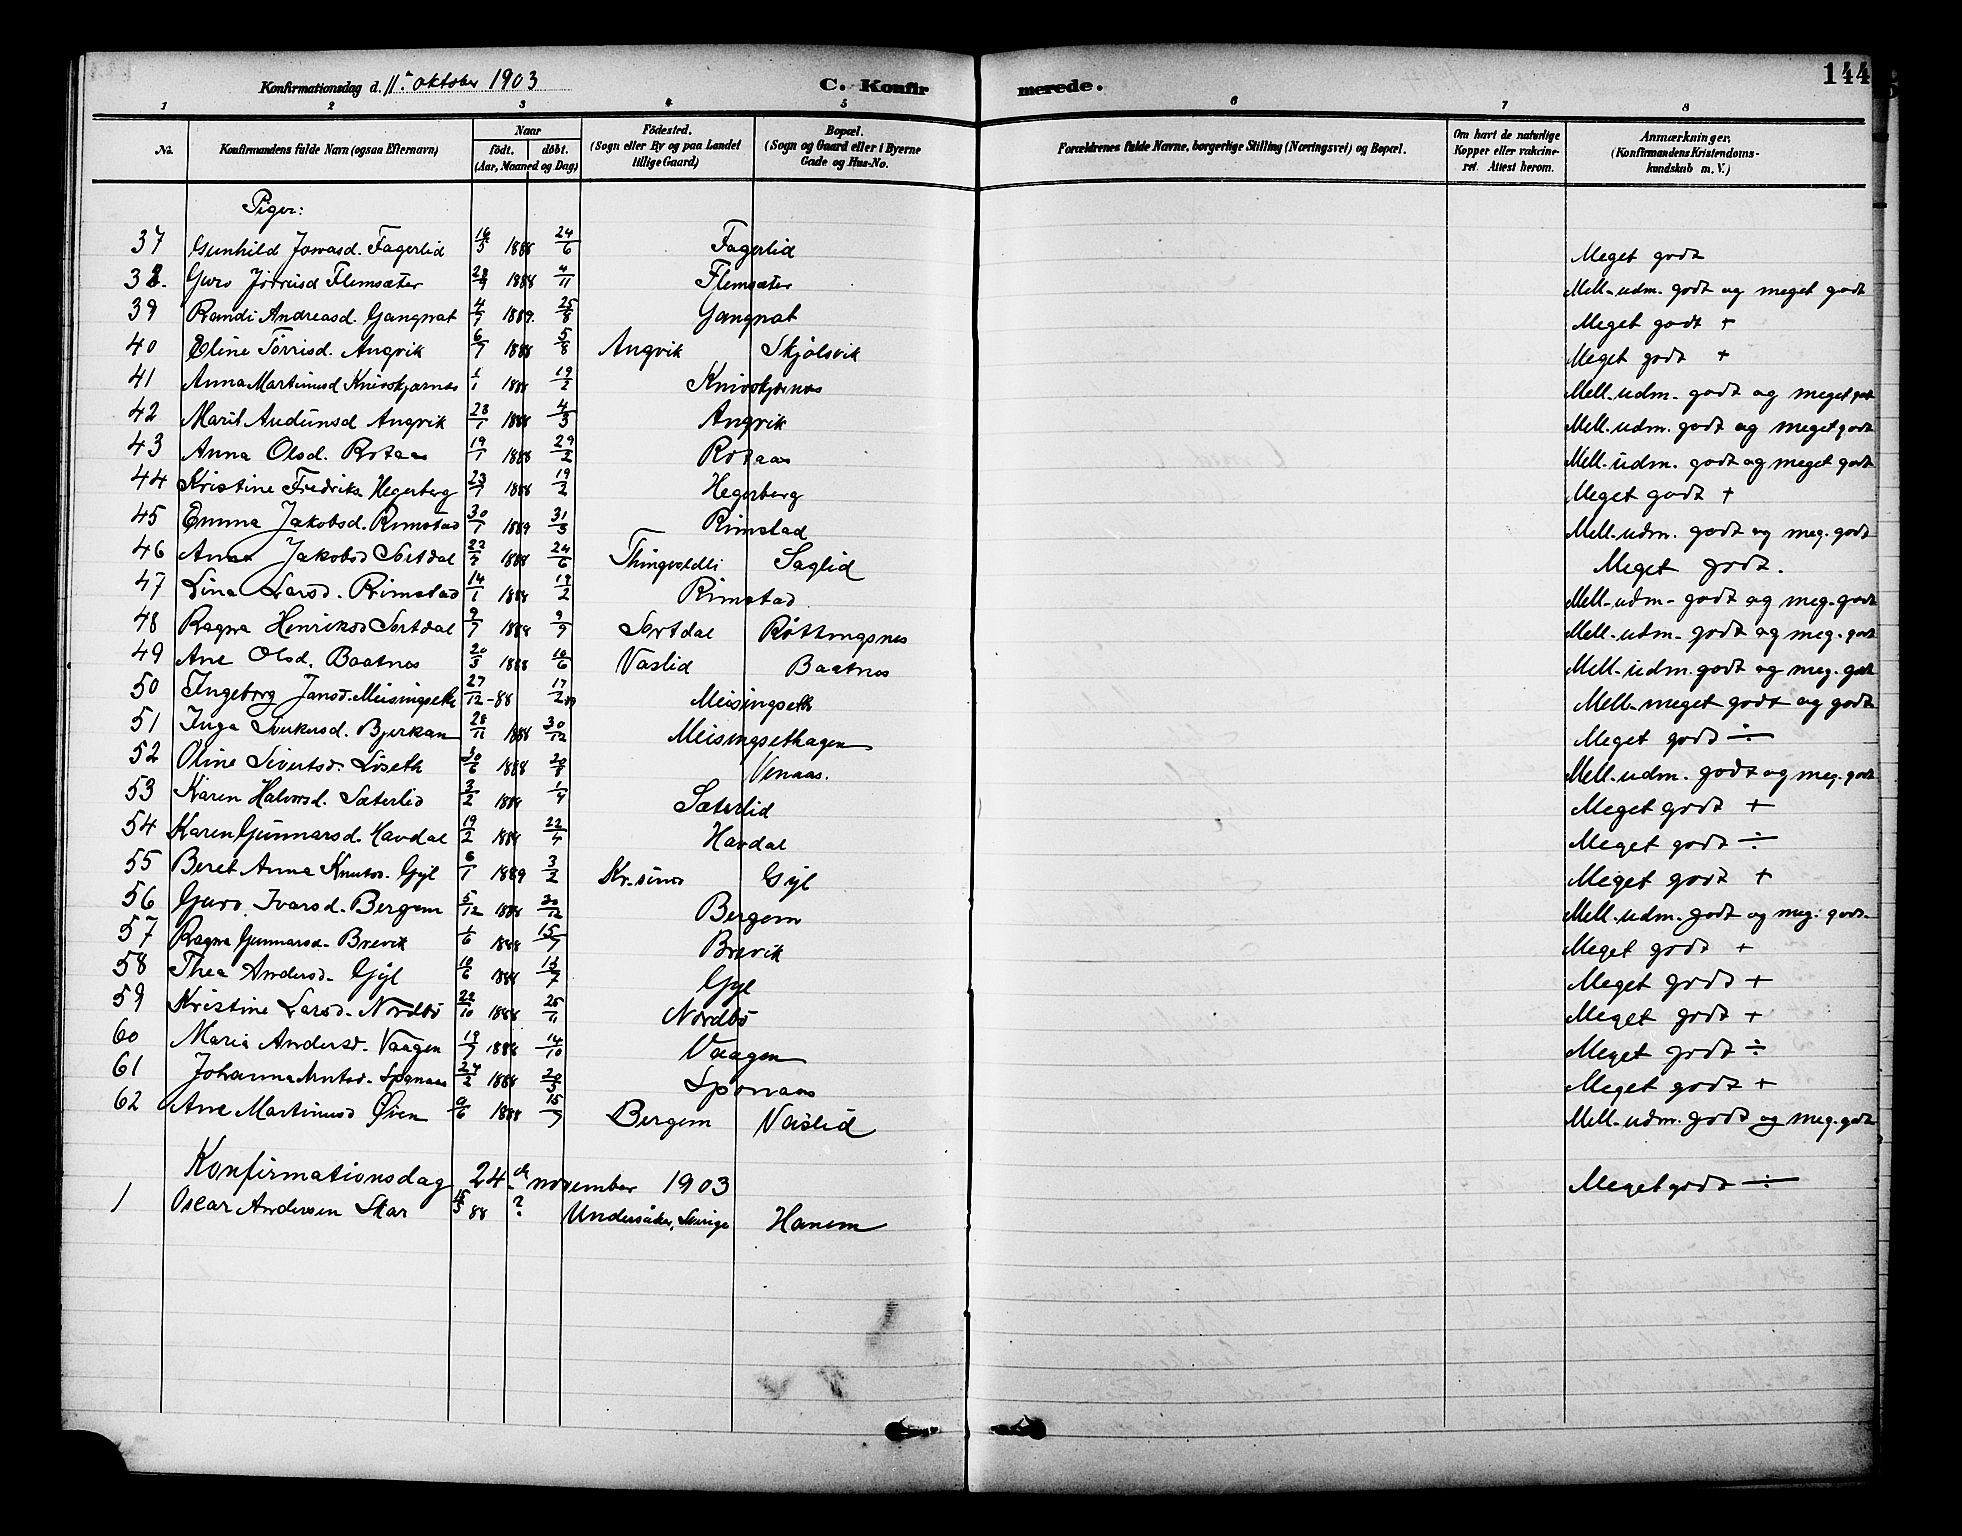 144
Konfirmationsdag d. 11te oktober 1903
C. Konfirmerede.
1 2 3 4 5 6 7 8
No. Konfirmandens fulde Navn (ogsaa Efternavn) Naar født. døbt. (Aar, Maaned og Dag) Födested. (Sogn eller By og paa Landet tillige Gaard) Bopæl. (Sogn og Gaard eller i Byerne Gade og Hus-No. Forældrenes fulde Navne, borgerlige Stilling (Næringsvei) og Bopæl. Om havt de naturlige Kopper eller vakcineret. Attest herom. Anmærkninger, (Konfirmandens Kristendomskundskab m. V.)
Piger:
37 Gunhild Jonasd. Fagerlid 16/5 1888 24/6 Fagerlid Meget godt
38. Guro Flemsæter 28/9 1888 4/11 Flemsæter Mell. udm. godt og meget godt
39 Randi Andreasd. Gangnat 4/7 1889. 25/8 Gangnat Meget godt +
40 Eline Torrisd. Angvik 6/7 1888 5/8 Angvik Skjølsvik Meget godt +
41 Anna Martinusd Knivskjærnes 1/1 1888 19/2 Knivskjærnes Mell. udm. godt og meget godt
42 Marit Audunsd Angvik 28/1 1888 4/3 Angvik Mell. udm. godt og meget godt
43 Anna Olsd. Rotaas 19/1 1888 29/2 Rotaas Mell. udm. godt og meget godt
44 Kristine Fredrika Hegerberg 23/1 1888 19/2 Hegerberg Meget godt +
45 Emma Jakobsd. Rimstad 30/1 1889 31/3 Rimstad Mell. udm. godt og meg. godt
46 Anna Jakobsd Sortdal 1888 24/6 Saglid Meget godt.
47 Lina Larsd. Rimstad 14/1 1888 19/2 Rimstad Mell. udm. godt og meg. godt
48 Ragna Henriksd Sortdal 9/7 1888 9/9 Sortdal Røttingsnes Mell. udm. godt og meg. godt
49 Ane Olsd. Baatnes 20/5 1888 10/6 Vaslid Baatnes Mell. udm. godt og meg. godt
50 Ingeborg Jansd. Meisingseth 27/12 -88 17/2 89 Meisingseth Mell. meget godt og godt
51 Inga Sivertsd. Bjerkan 28/11 1888 30/12 Meisingsethagen Meget godt ÷
52 Oline Sivertsd. Løseth 30/6 1888 Venaas. Mell. udm. godt og meg. godt
53 Karen Halvorsd. Sæterlid 3/2 1888 1/4 Sæterlid Meget godt +
54 Karen Gunnarsd. Havdal 19/2 1888 22/4 Havdal Meget godt ÷
55 Beret Anna Knutsd. Gyl 6/1 1889 3/2 Kr.sund Gyl Meget godt +
56 Guro Ivarsd. Bergem 5/12 1888 30/12 Bergem Mell. udm. godt og meg. godt.
57 Ragna Gunnarsd. Brevik 1/6 1888 15/7 Brevik Meget godt +
58 Thea Andersd. Gyl 10/6 1888 15/7 Gyl Meget godt +
59 Kristine Larsd. Nordbø 22/10 1888 25/11 Nordbø Meget godt +
60 Maria Andersd. Vaagen 19/7 1888 14/10 Vaagen Meget godt ÷
61 Johanna Arntsd. Sponaas 24/2 1888 20/5 Sponaas Meget godt +
62 Ane Martinusd Øien 9/6 1888 15/7 Bergem Vaslid Mell. udm. godt og meg. godt
Konfirmationsdag 24de november 1903
1 Oscar Andersen Skar 15/5 88 ? Undersåker, Sverige Hanem Meget godt ÷